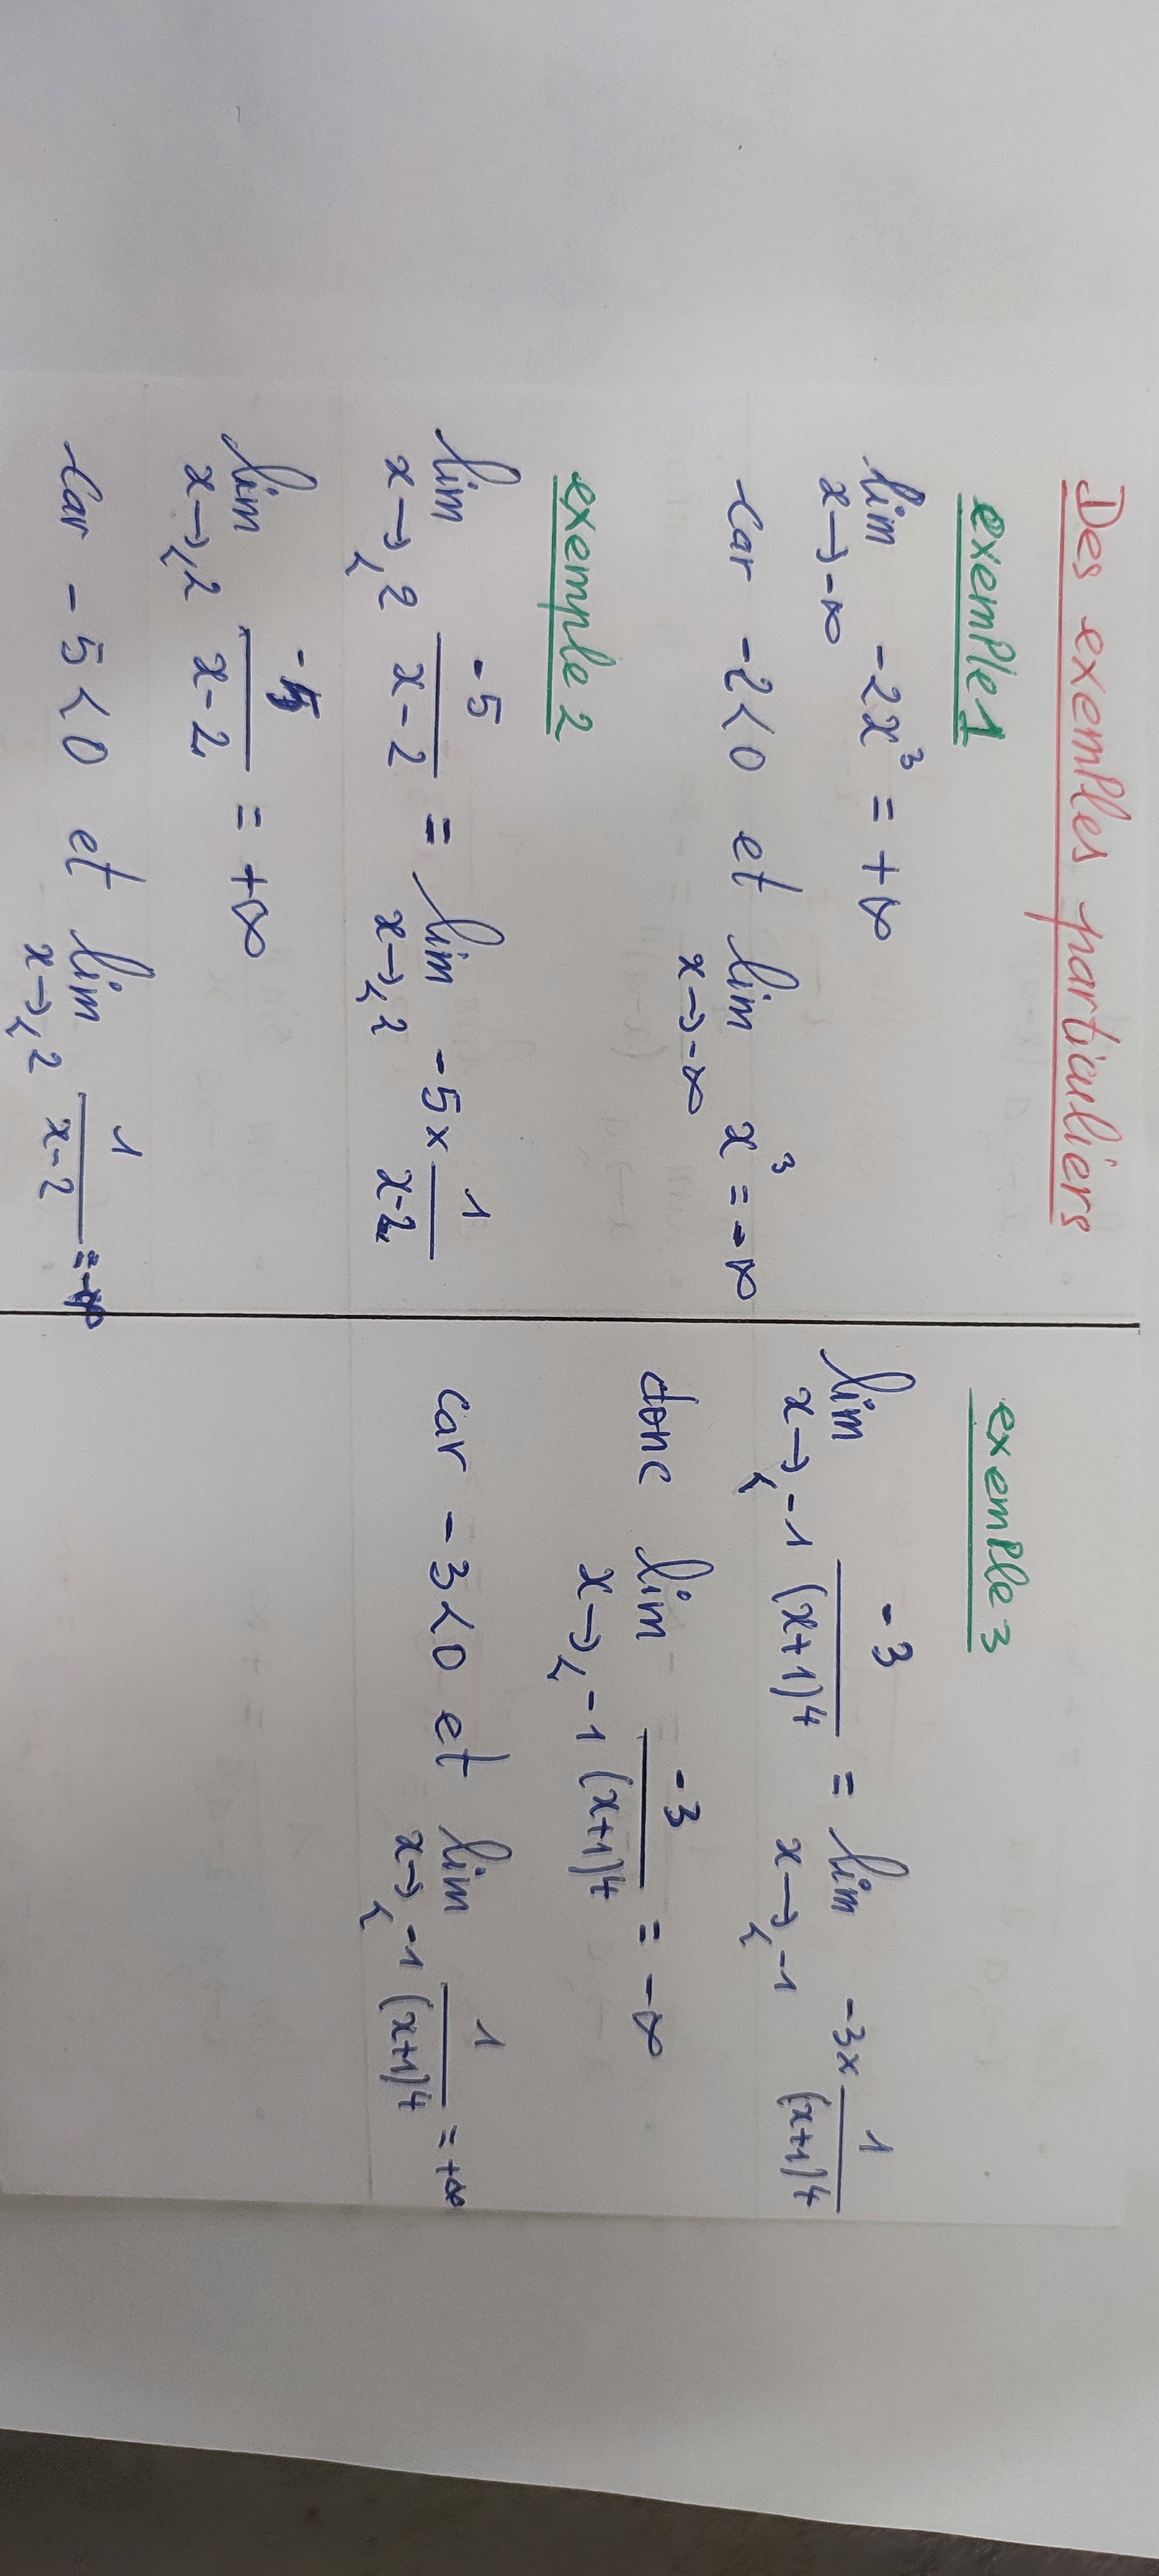 Des exemples particuliers
exemple 1
lim_{x→-∞} -2x³ = +∞
car -2<0 et lim_{x→-∞} x³ = -∞
exemple 2
lim_{x→<2} -5/(x-2) = lim_{x→<2} -5 × 1/(x-2)
lim_{x→<2} -5/(x-2) = +∞
car -5<0 et lim_{x→<2} 1/(x-2) = -∞
exemple 3
lim_{x→<-1} -3/(x+1)⁴ = lim_{x→<-1} -3 × 1/(x+1)⁴
donc lim_{x→<-1} -3/(x+1)⁴ = -∞
car -3<0 et lim_{x→<-1} 1/(x+1)⁴ = +∞